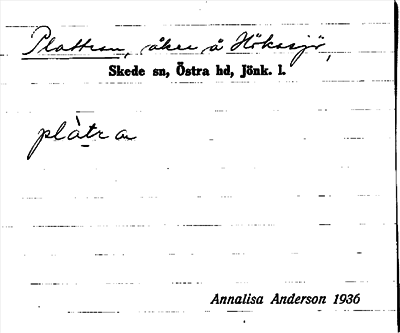 Plattran, åker å Hökasjö,
Skede sn, Östra hd, Jönk. l.
plàtra
Annalisa Anderson 1936